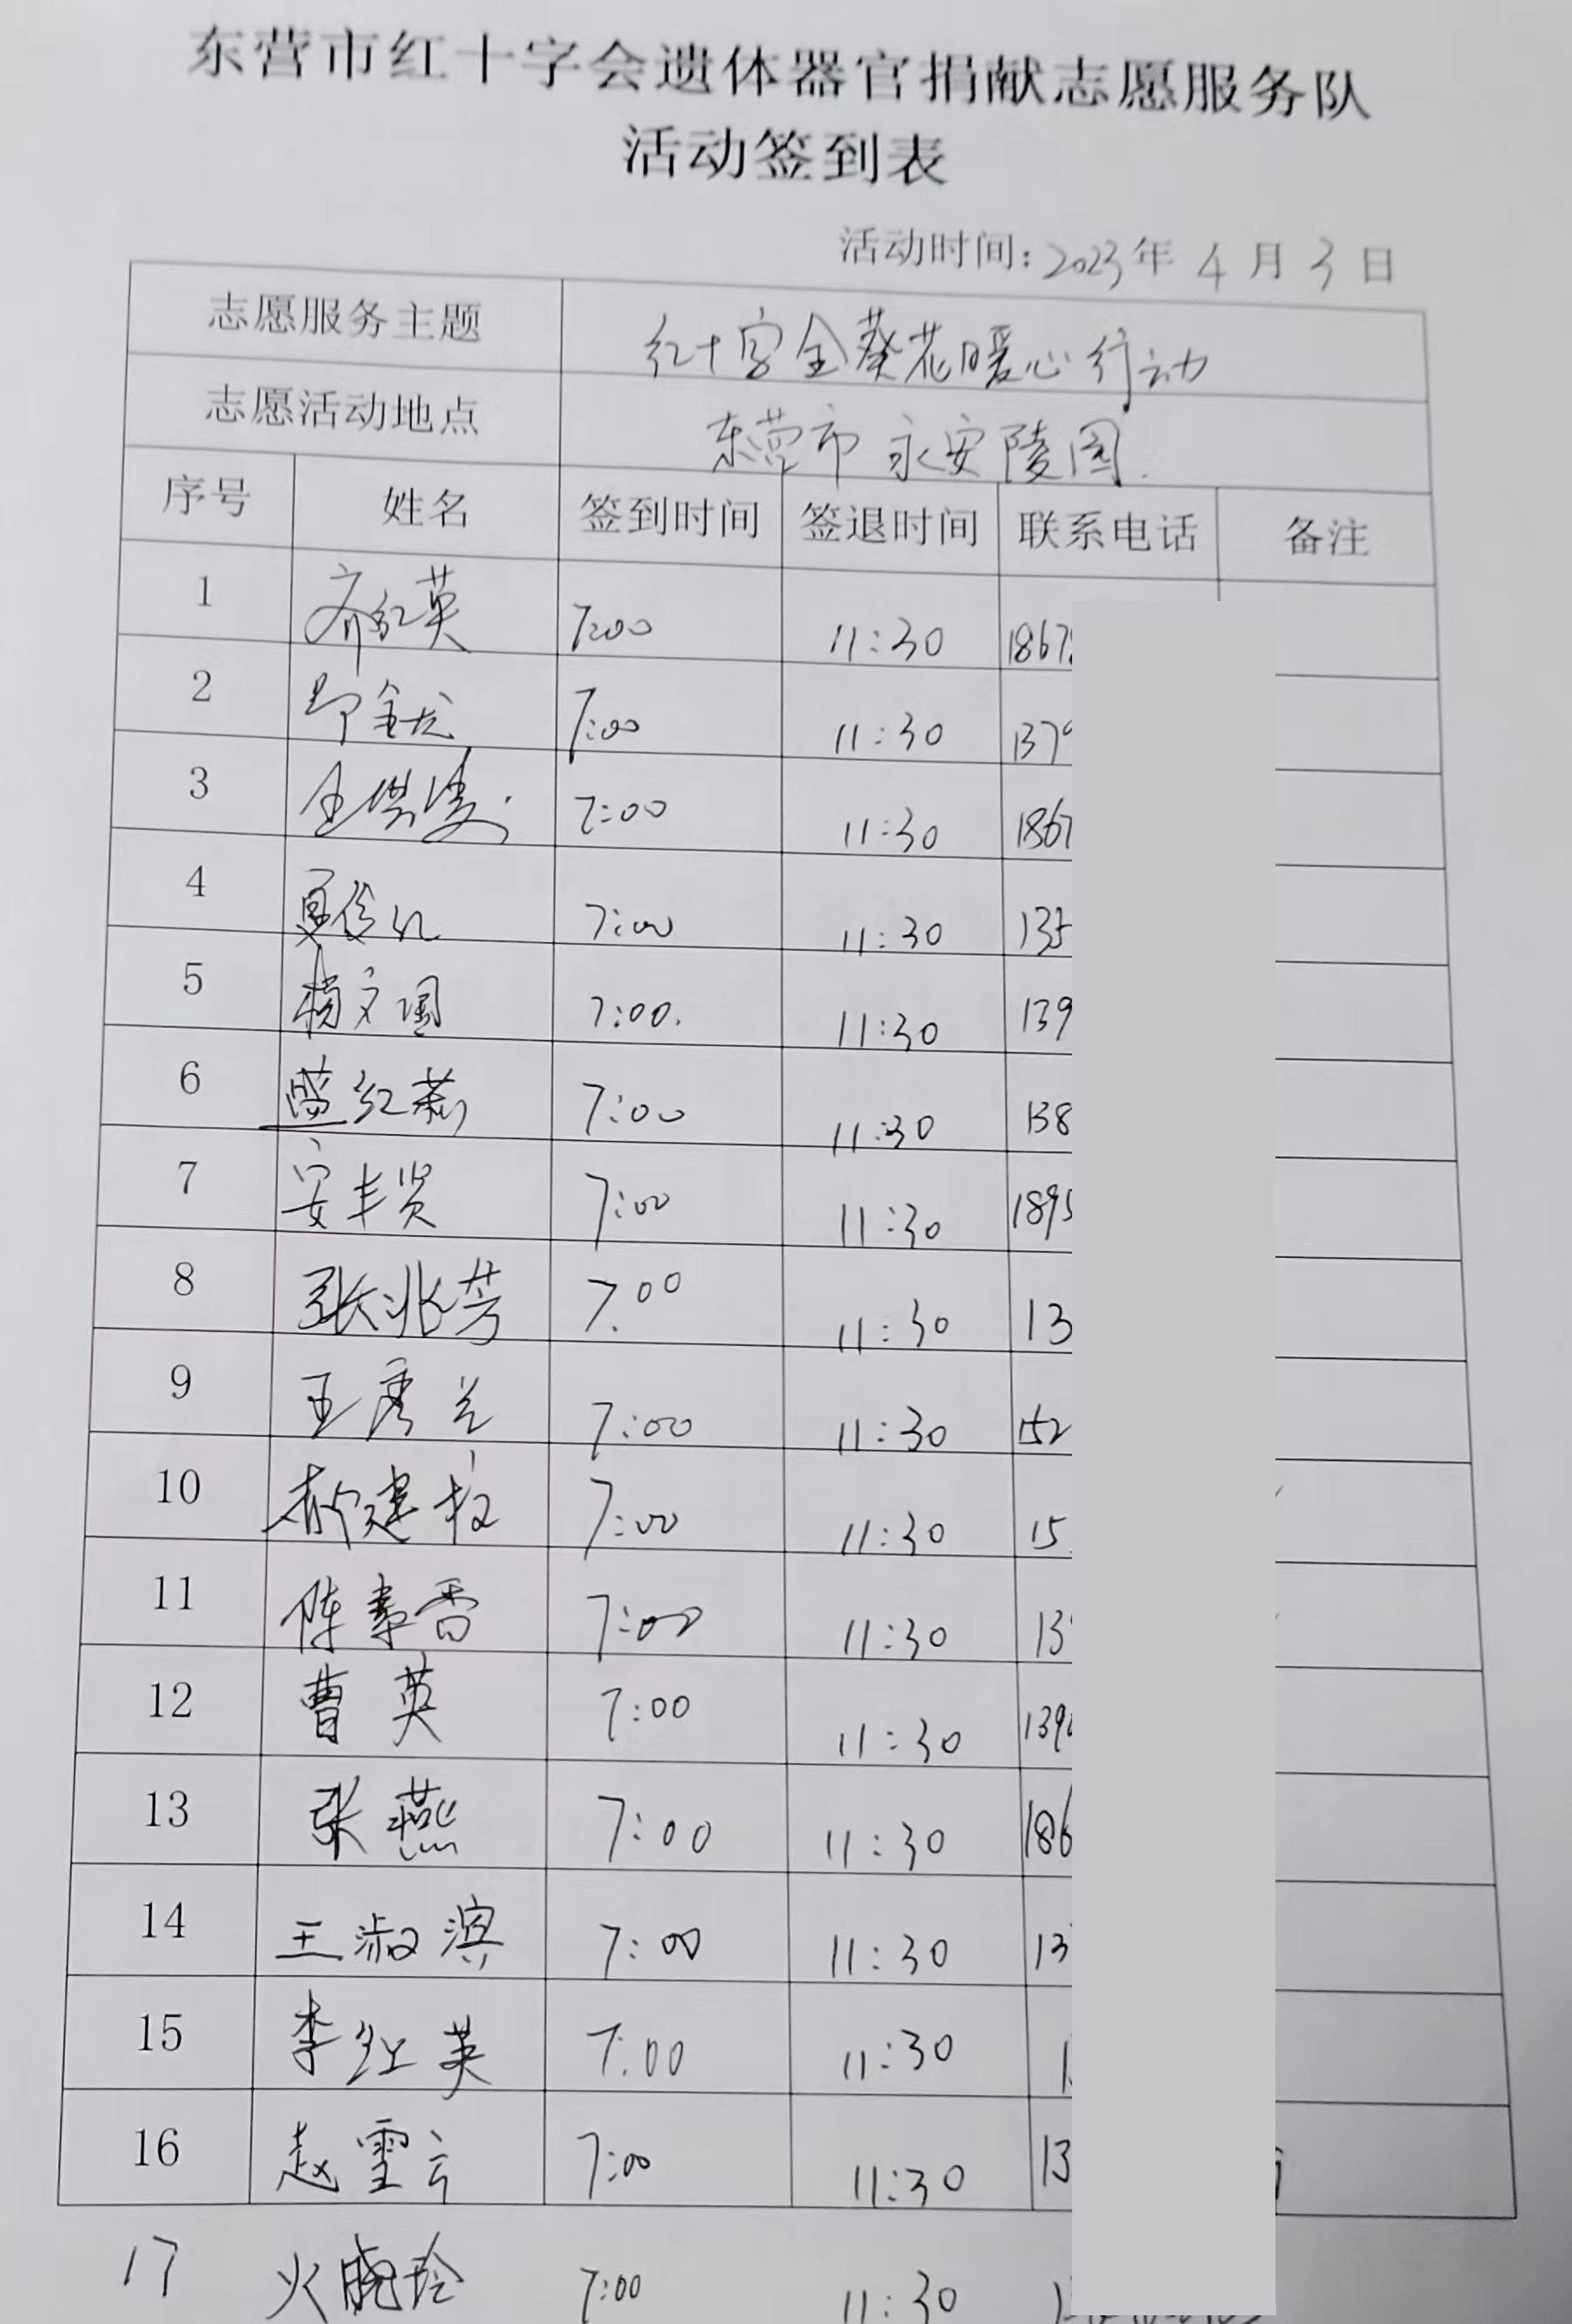 东营市红十字会遗体器官捐献志愿服务队
活动签到表
活动时间：2023年 4 月 3 日
志愿服务主题 红十字会葵花暖心行动
志愿活动地点 东营市永安陵园.
序号 姓名 签到时间 签退时间 联系电话 备注
1 齐红英 7:00 11:30 1867
2 7:00 11:30 137
3 7:00 11:30 1867
4 夏俊红 7:00 11:30 135
5 杨文国 7:00. 11:30 139
6 蓝红莉 7:00 11:30 138
7 安丰贤 7:00 11:30 1895
8 张兆芳 7:00 11:30 13
9 王彦兰 7:00 11:30 152
10 郝建 7:00 11:30 15
11 陈素香 7:00 11:30 13
12 曹英 7:00 11:30 139
13 张燕 7:00 11:30 186
14 王淑滨 7:00 11:30 13
15 李红英 7:00 11:30 1
16 赵雪云 7:00 11:30 13
17 火晓玲 7:00 11:30 1